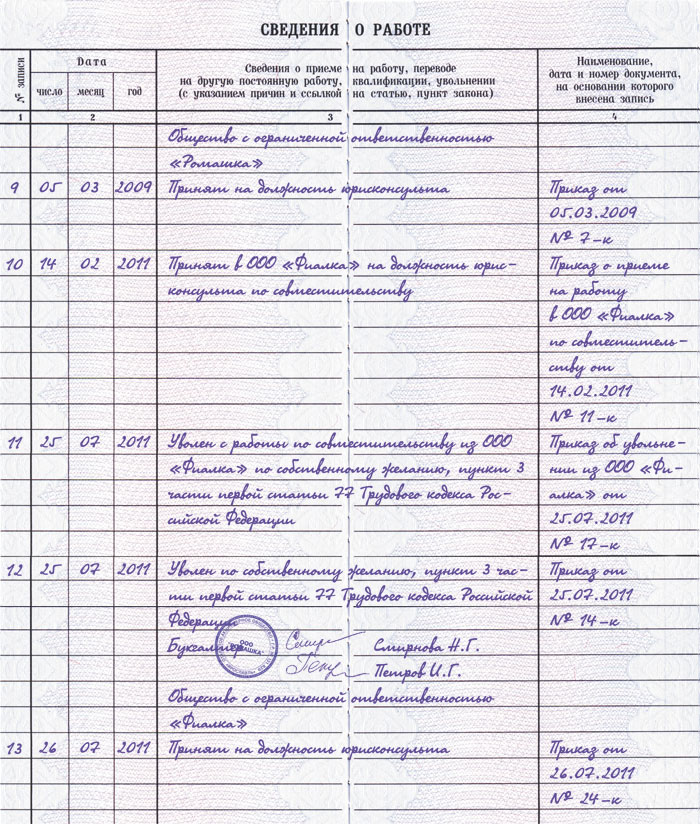 СВЕДЕНИЯ О РАБОТЕ
№ записи
Дата
число месяц год
Сведения о приеме на работу, переводе
на другую постоянную работу, квалификации, увольнении
(с указанием причин и ссылкой на статью, пункт закона)
Наименование,
дата и номер документа,
на основании которого
внесена запись
1 2 3 4
Общество с ограниченной ответственностью
«Ромашка»
9 05 03 2009 Принят на должность юрисконсульта Приказ от
05.03.2009
№ 7-к
10 14 02 2011 Принят в ООО «Фиалка» на должность юрис- Приказ о приеме
консульта по совместительству на работу
в ООО «Фиалка»
по совместитель-
ству от
14.02.2011
№ 11-к
11 25 07 2011 Уволен с работы по совместительству из ООО Приказ об увольне-
«Фиалка» по собственному желанию, пункт 3 нии из ООО «Фи-
части первой статьи 77 Трудового кодекса Рос- алка» от
сийской Федерации 25.07.2011
№ 17-к
12 25 07 2011 Уволен по собственному желанию, пункт 3 час- Приказ от
ти первой статьи 77 Трудового кодекса Российской 25.07.2011
Федерации № 14-к
Бухгалтер Смирнова Н.Г.
ООО
"РОМАШКА"
Петров И.Г.
Общество с ограниченной ответственностью
«Фиалка»
13 26 07 2011 Принят на должность юрисконсульта Приказ от
26.07.2011
№ 24-к